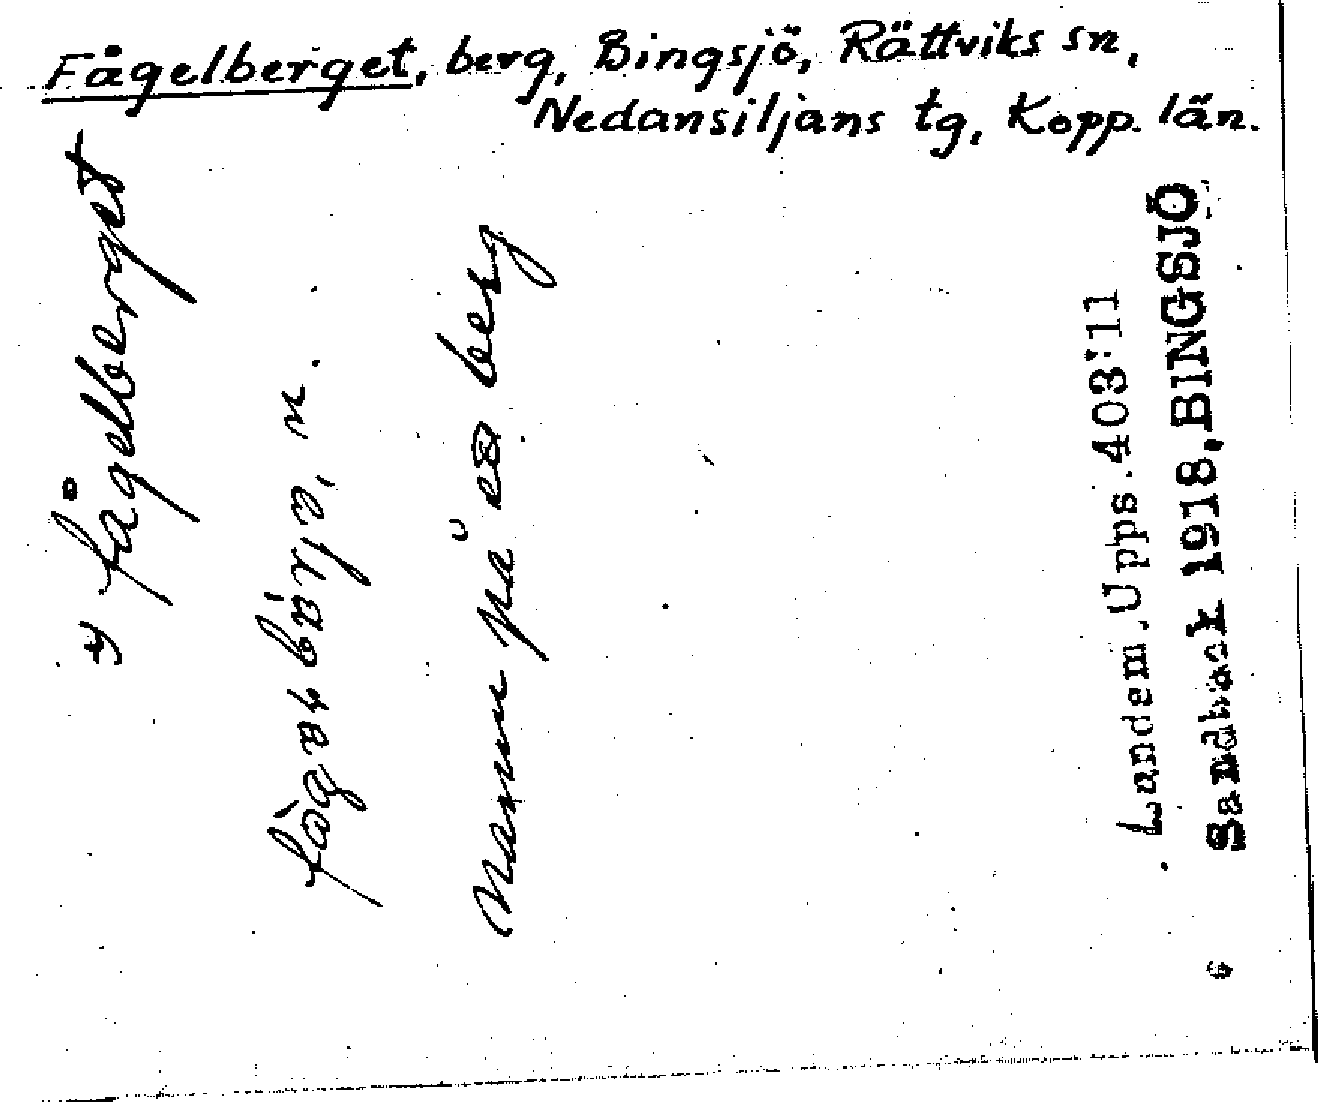 Fågelberget, berg, Bingsjö, Rättviks sn,
Nedansiljans tg, Kopp. län.
fågelberget
n.
Namn på berg
Landsm. Upps. 403:11
Sandback 1918, BINGSJÖ